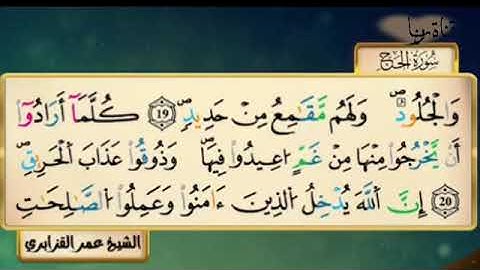 قناة
سُورَةُ الحَجِّ
وَالْجُلُودُۖ وَلَهُم مَّقَٰمِعُ مِنْ حَدِيدٖۖ 19 كُلَّمَآ أَرَادُوٓاْ
أَنْ يَّخْرُجُواْ مِنْهَا مِنْ غَمٍّ اعِيدُواْ فِيهَاۖ وَذُوقُواْ عَذَابَ اَ۬لْحَرِيقِۖ
20 إِنَّ اَ۬للَّهَ يُدْخِلُ اُ۬لذِينَ ءَامَنُواْ وَعَمِلُواْ اُ۬لصَّٰلِحَٰتِ
الشيخ عمر القزابري